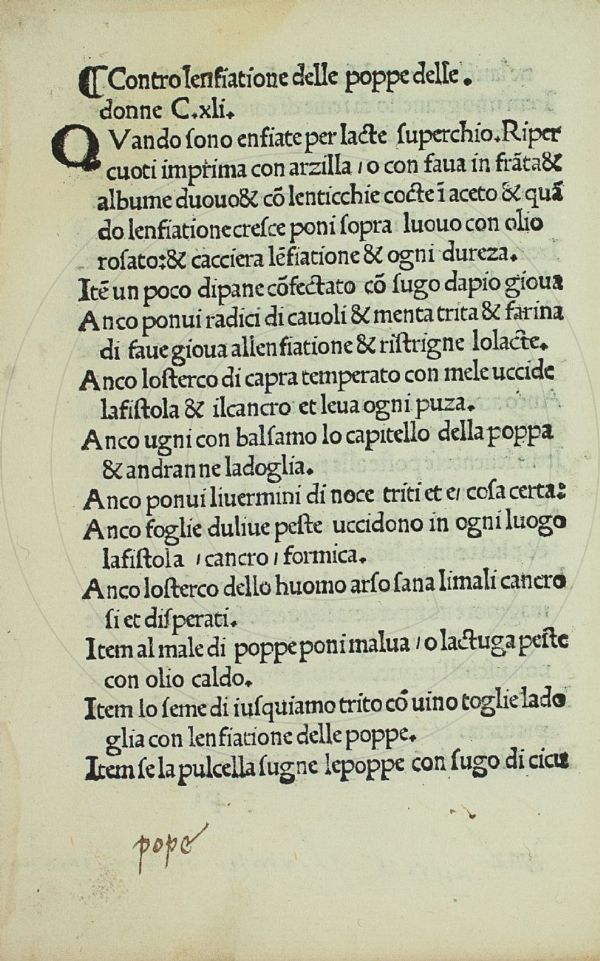 ⸿ Contro lenfiatione delle poppe delle.
donne C.xli.
QVando ſono enfiate per lacte ſuperchio.Riper
cuoti imprima con arzilla / o con faua in frāta&
albume duouo& cō lenticchie cocte ī aceto & quā
do lenfiatione creſce poni ſopra luouo con olio
roſato:& cacciera lēfiatione & ogni dureza.
Itē un poco dipane cōfectato cō ſugo dapio gioua
Anco ponui radici di cauoli & menta trita & farina
di faue gioua allenfiatione & riſtrigne lolacte.
Anco loſterco di capra temperato con mele uccide
lafiſtola & ilcancro et leua ogni puza.
Anco ugni con balſamo lo capitello della poppa
& andranne ladoglia.
Anco ponui liuermini di noce triti et e/ coſa certa:
Anco foglie duliue peſte uccidono in ogni luogo
lafiſtola / cancro / formica.
Anco loſterco dello huomo arſo ſana limali cancro
ſi et diſperati.
Item al male di poppe poni malua / o lactuga peſte
con olio caldo.
Item lo ſeme di iuſquiamo trito cō uino toglie lado
glia con lenfiatione delle poppe.
Item ſe la pulcella ſugne lepoppe con ſugo di cicu
pope